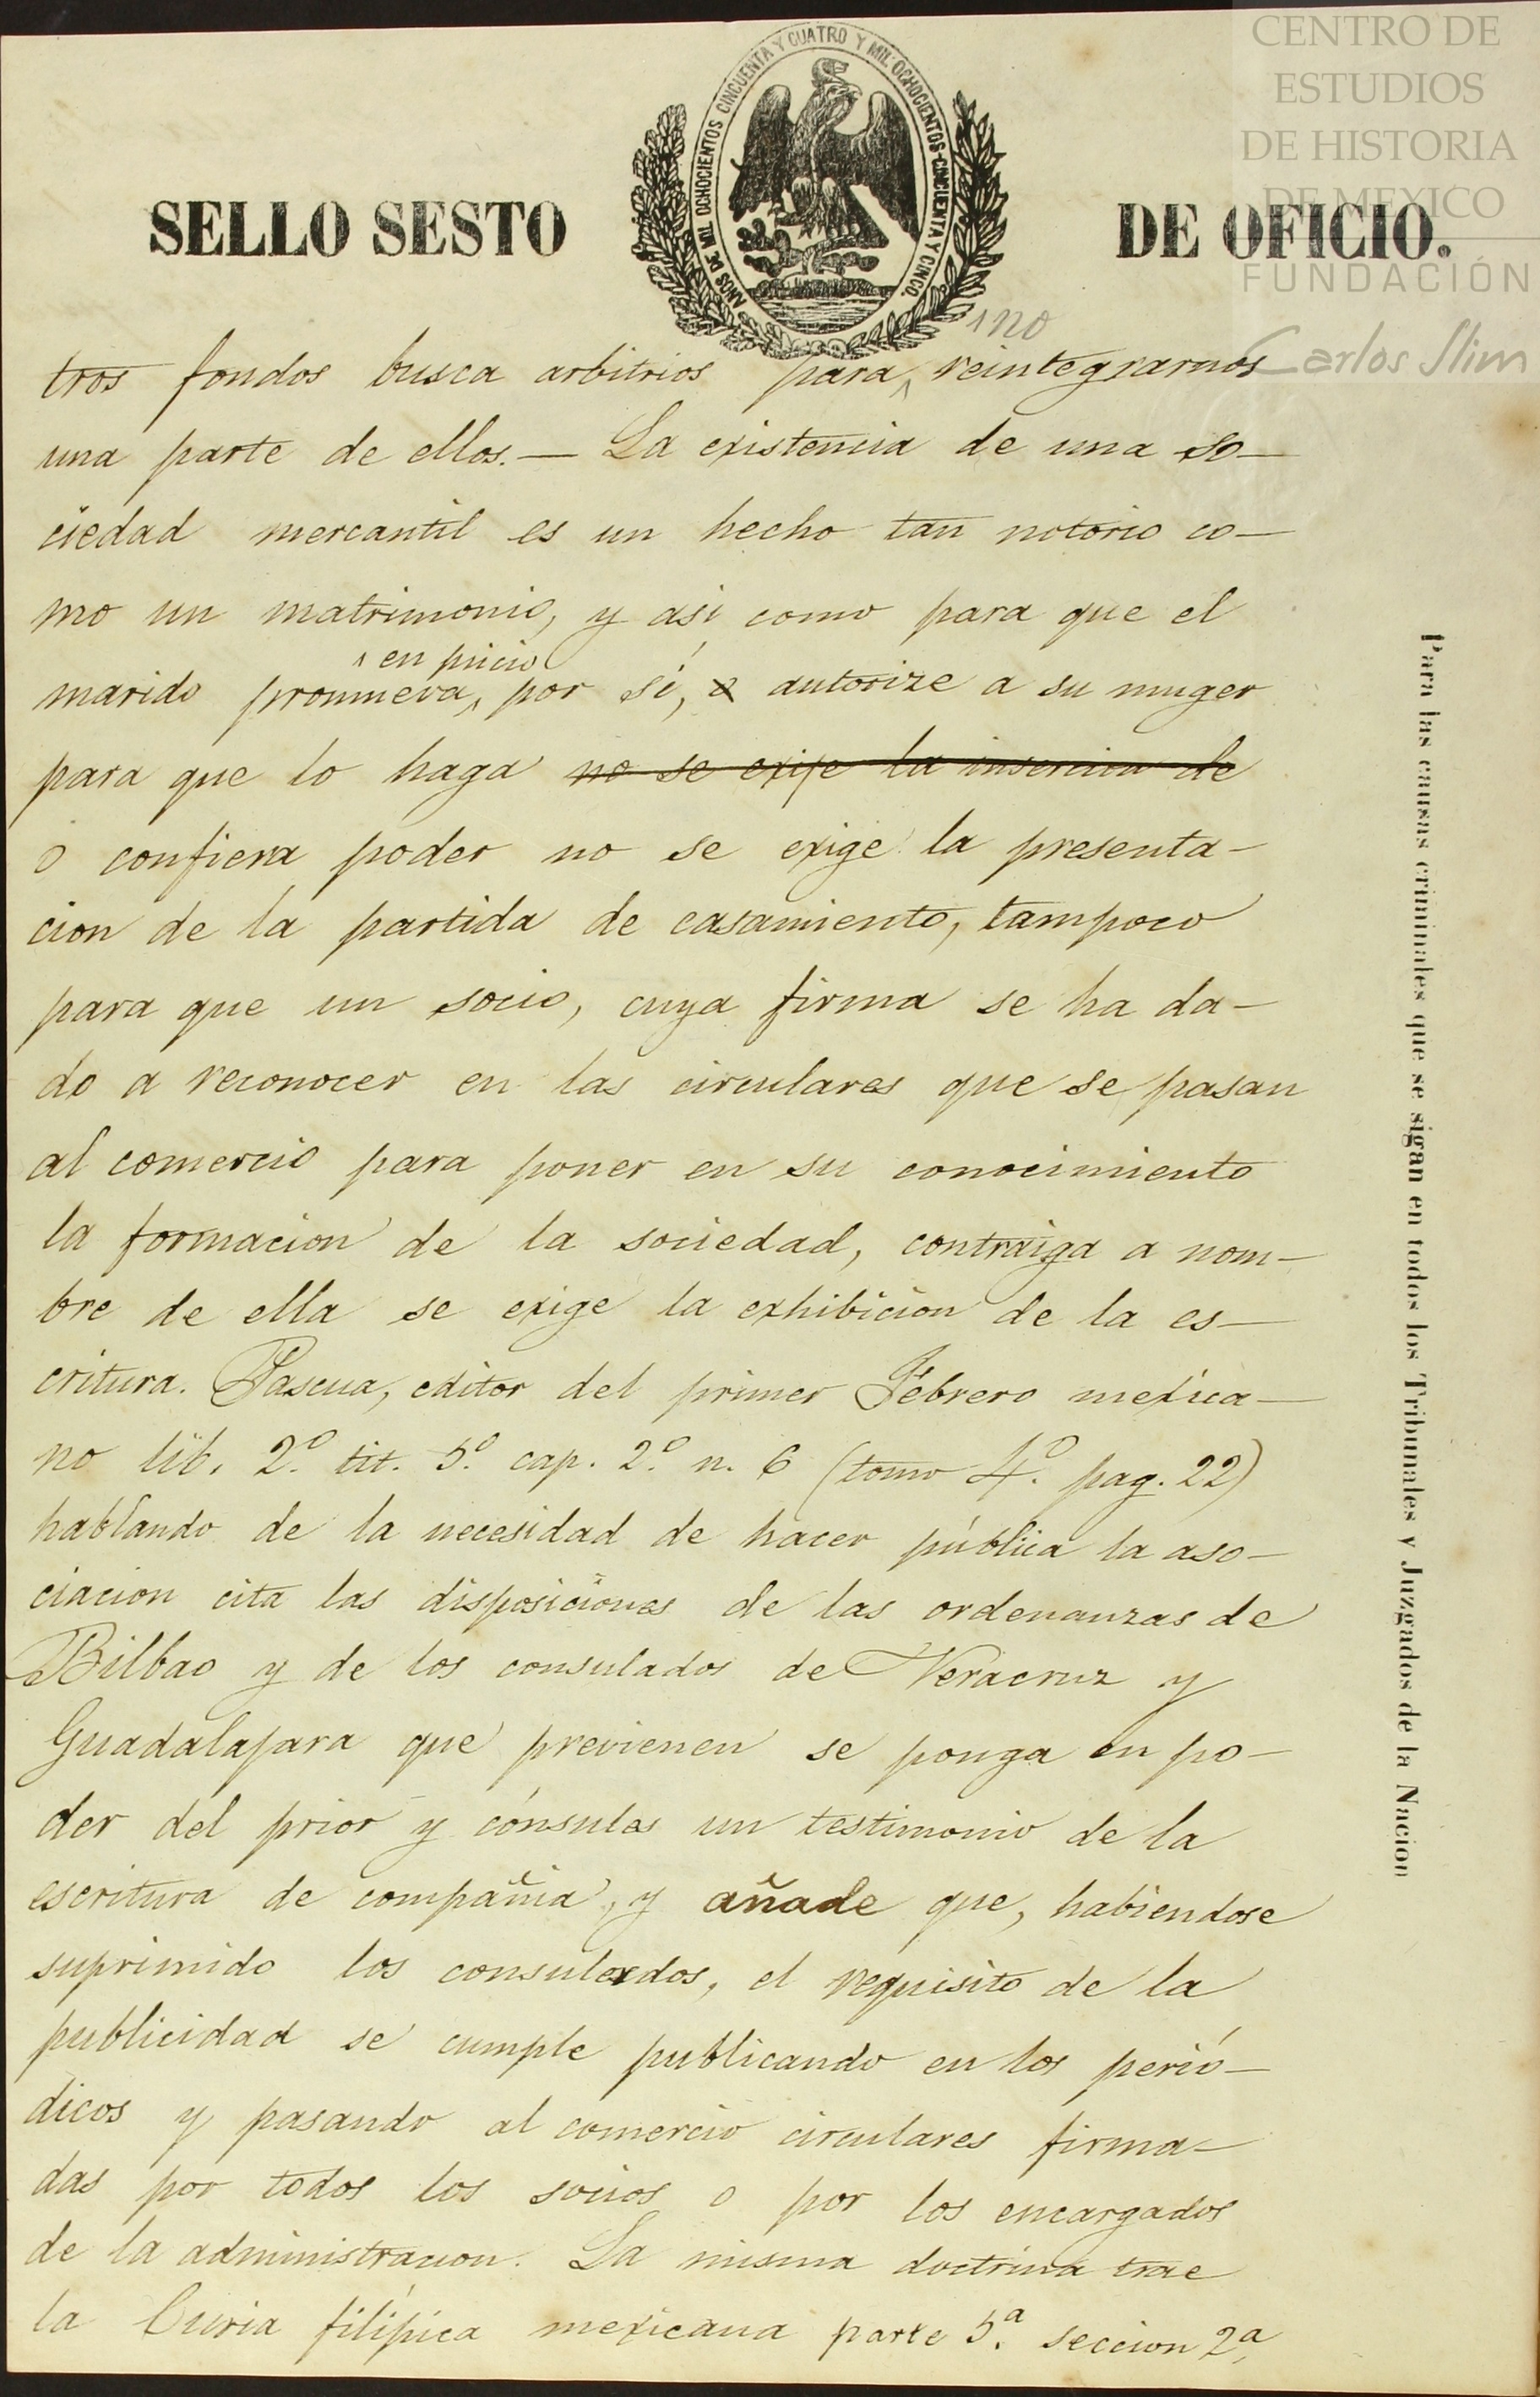 CENTRO DE
ESTUDIOS
DE HISTORIA
DE MEXICO
FUNDACIÓN
Carlos Slim
AÑOS DE MIL OCHOCIENTOS CINCUENTA Y CUATRO Y MIL OCHOCIENTOS CINCUENTA Y CINCO.
SELLO SESTO DE OFICIO.
no
tros fondos busca arbitrios para reintegrarnos
una parte de ellos.— La existencia de una so-
ciedad mercantil es un hecho tan notorio co-
mo un matrimonio, y asi como para que el
en juicio
marido promueva, por sí, o autorize a su muger
para que lo haga no se exije la insercion de
o confiera poder no se exige la presenta-
cion de la partida de casamiento, tampoco
para que un socio, cuya firma se ha da-
do a reconocer en las circulares que se pasan
al comercio para poner en su conocimiento
la formacion de la sociedad, contraiga a nom-
bre de ella se exige la exhibicion de la es-
critura. Pascua, editor del primer Febrero mexica-
no lib. 2º. tit. 5º. cap. 2º. n. 6 (tomo 4º. pag. 22)
hablando de la necesidad de hacer pública la aso-
ciacion cita las disposiciones de las ordenanzas de
Bilbao y de los consulados de Veracruz y
Guadalajara que previenen se ponga en po-
der del prior y cónsules un testimonio de la
escritura de compañia, y añade que, habiendose
suprimido los consulados, el requisito de la
publicidad se cumple publicando en los perió-
dicos y pasando al comercio circulares firma-
das por todos los socios o por los encargados
de la administracion. La misma doctrina trae
la Curia filípica mexicana parte 5ª. seccion 2ª,
Para las causas criminales que se sigan en todos los Tribunales y Juzgados de la Nacion